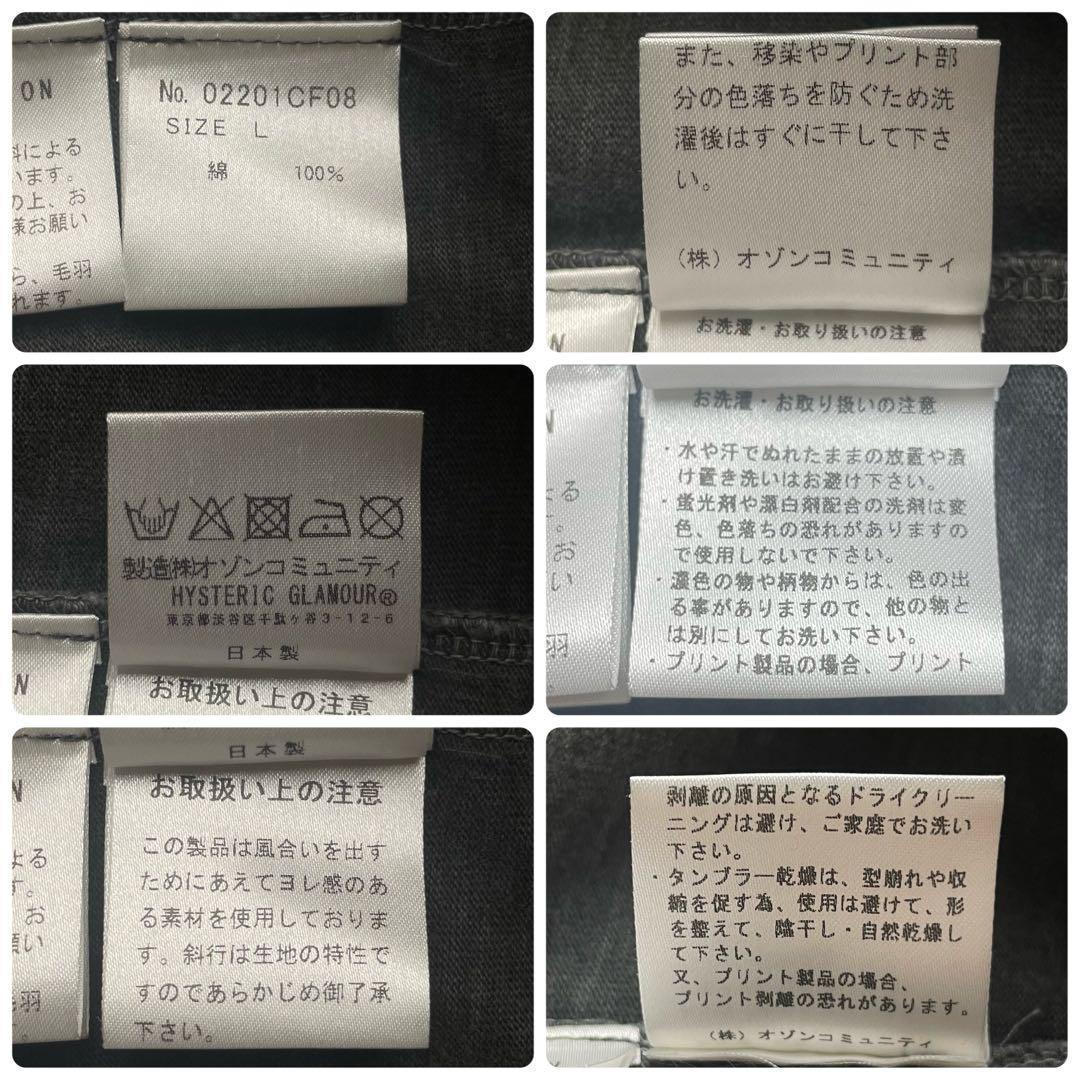 ON
料による
います。
の上、お
様お願い
ら、毛羽
れます。
No. 02201CF08
SIZE L
綿 100%
また、移染やプリント部
分の色落ちを防ぐため洗
濯後はすぐに干して下さ
い。
(株) オゾンコミュニティ
N
お洗濯・お取り扱いの注意
製造(株)オゾンコミュニティ
HYSTERIC GLAMOUR®
東京都渋谷区千駄ヶ谷3-12-6
日本製
N
お取扱い上の注意
N
よる
。
お
い
羽
お洗濯・お取り扱いの注意
・水や汗でぬれたままの放置や漬
け置き洗いはお避け下さい。
・蛍光剤や漂白剤配合の洗剤は変
色、色落ちの恐れがありますの
で使用しないで下さい。
・濃色の物や柄物からは、色の出
る事がありますので、他の物と
は別にしてお洗い下さい。
・プリント製品の場合、プリント
N
よる
す。
お
願い
毛羽
す。
日本製
お取扱い上の注意
この製品は風合いを出す
ためにあえてヨレ感のあ
る素材を使用しておりま
す。斜行は生地の特性で
すのであらかじめ御了承
下さい。
剥離の原因となるドライクリー
ニングは避け、ご家庭でお洗い
下さい。
・タンブラー乾燥は、型崩れや収
縮を促す為、使用は避けて、形
を整えて、陰干し・自然乾燥し
て下さい。
又、プリント製品の場合、
プリント剥離の恐れがあります。
(株) オゾンコミュニティ